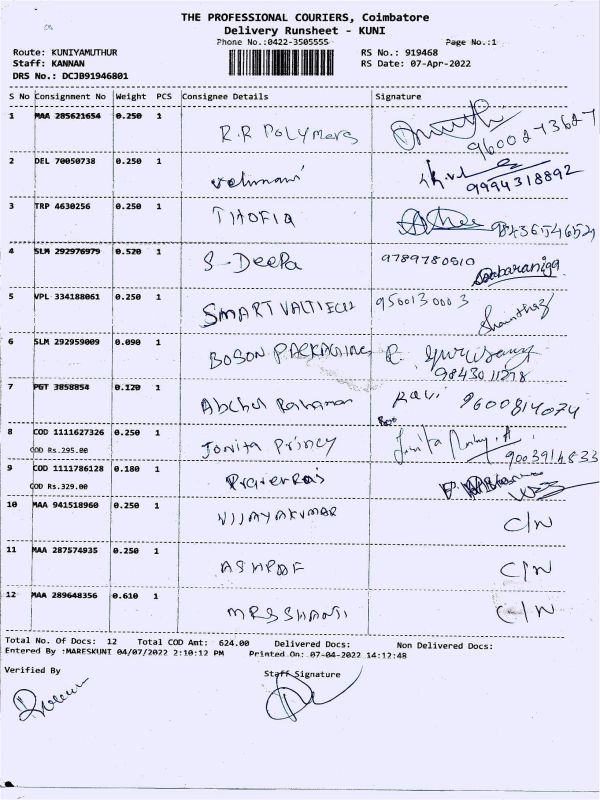 THE PROFESSIONAL COURIERS, Coimbatore
Delivery Runsheet - KUNI
Phone No.:0422-3505555 Page No.:1
Route: KUNIYAMUTHUR RS No.: 919468
Staff: KANNAN RS Date: 07-Apr-2022
DRS No.: DCJB91946801
S No Consignment No Weight PCS Consignee Details Signature
1 MAA 285621654 0.250 1 R.R Polymers 9600273627
2 DEL 70050738 0.250 1 9994318892
3 TRP 4630256 0.250 1
4 SLM 292976979 0.520 1 S-Deepa 9789780510
5 VPL 334188061 0.250 1 SMART VALTIECH 9500130003
6 SLM 292959009 0.090 1 BOSON PACKAGING
9843011278
7 PGT 3858854 0.120 1 Abdul Rahaman Ravi 9600814074
8 COD 1111627326 0.250 1 Jonita Princy
COD Rs.295.00 9003914833
9 COD 1111786128 0.180 1
COD Rs.329.00
10 MAA 941518960 0.250 1 VIJAYAKUMAR C/N
11 MAA 287574935 0.250 1 C/N
12 MAA 289648356 0.610 1 MRS SHANTI C/N
Total No. Of Docs: 12 Total COD Amt: 624.00 Delivered Docs: Non Delivered Docs:
Entered By :MARESKUNI 04/07/2022 2:10:12 PM Printed On: 07-04-2022 14:12:48
Verified By Staff Signature